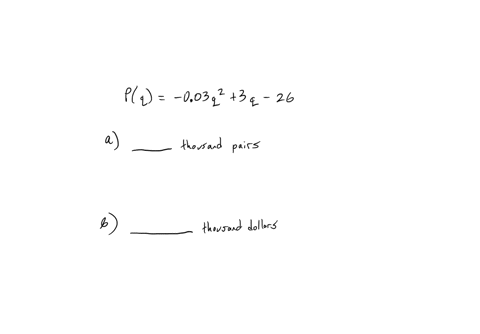 P(q) = -0.03q² + 3q - 26
a) ______ thousand pairs
b) ________ thousand dollars